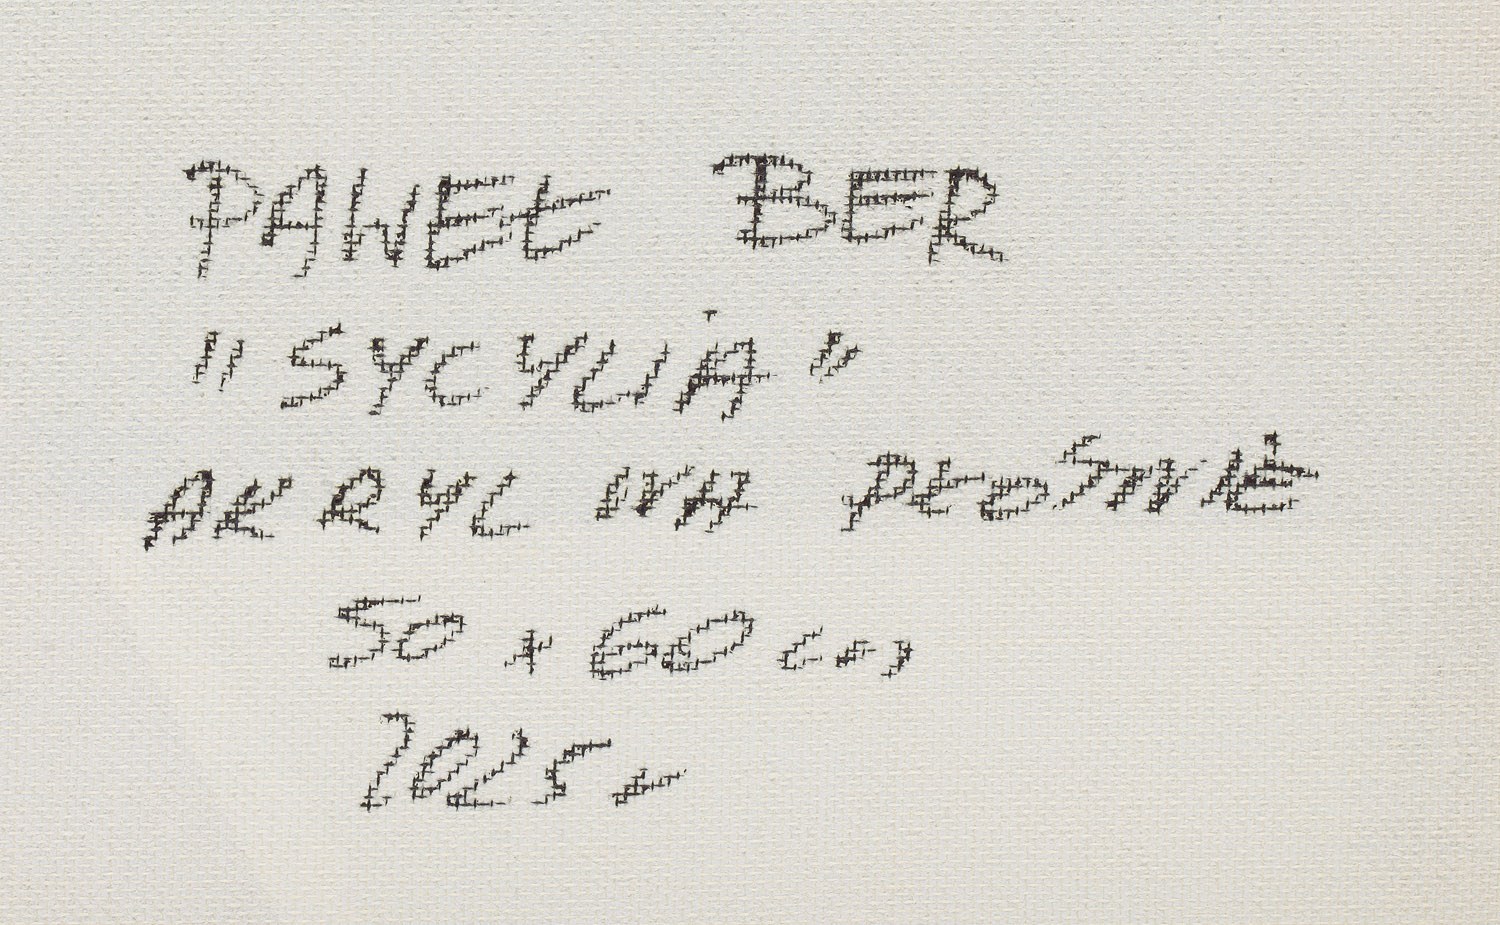 PAWEŁ BER
"SYCYLIA"
AKRYL NA PŁÓTNIE
50 x 60 cm
2025 r